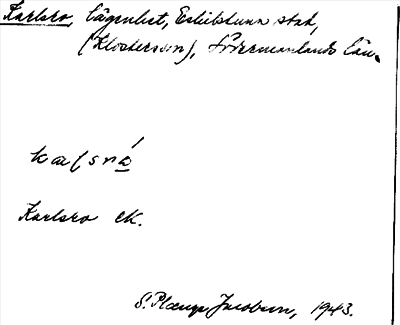 Karlsro, lägenhet, Eskilstuna stad,
(Klosters sn), Södermanlands län.
Karlsro ek.
S. Plænge Jacobson, 1943.